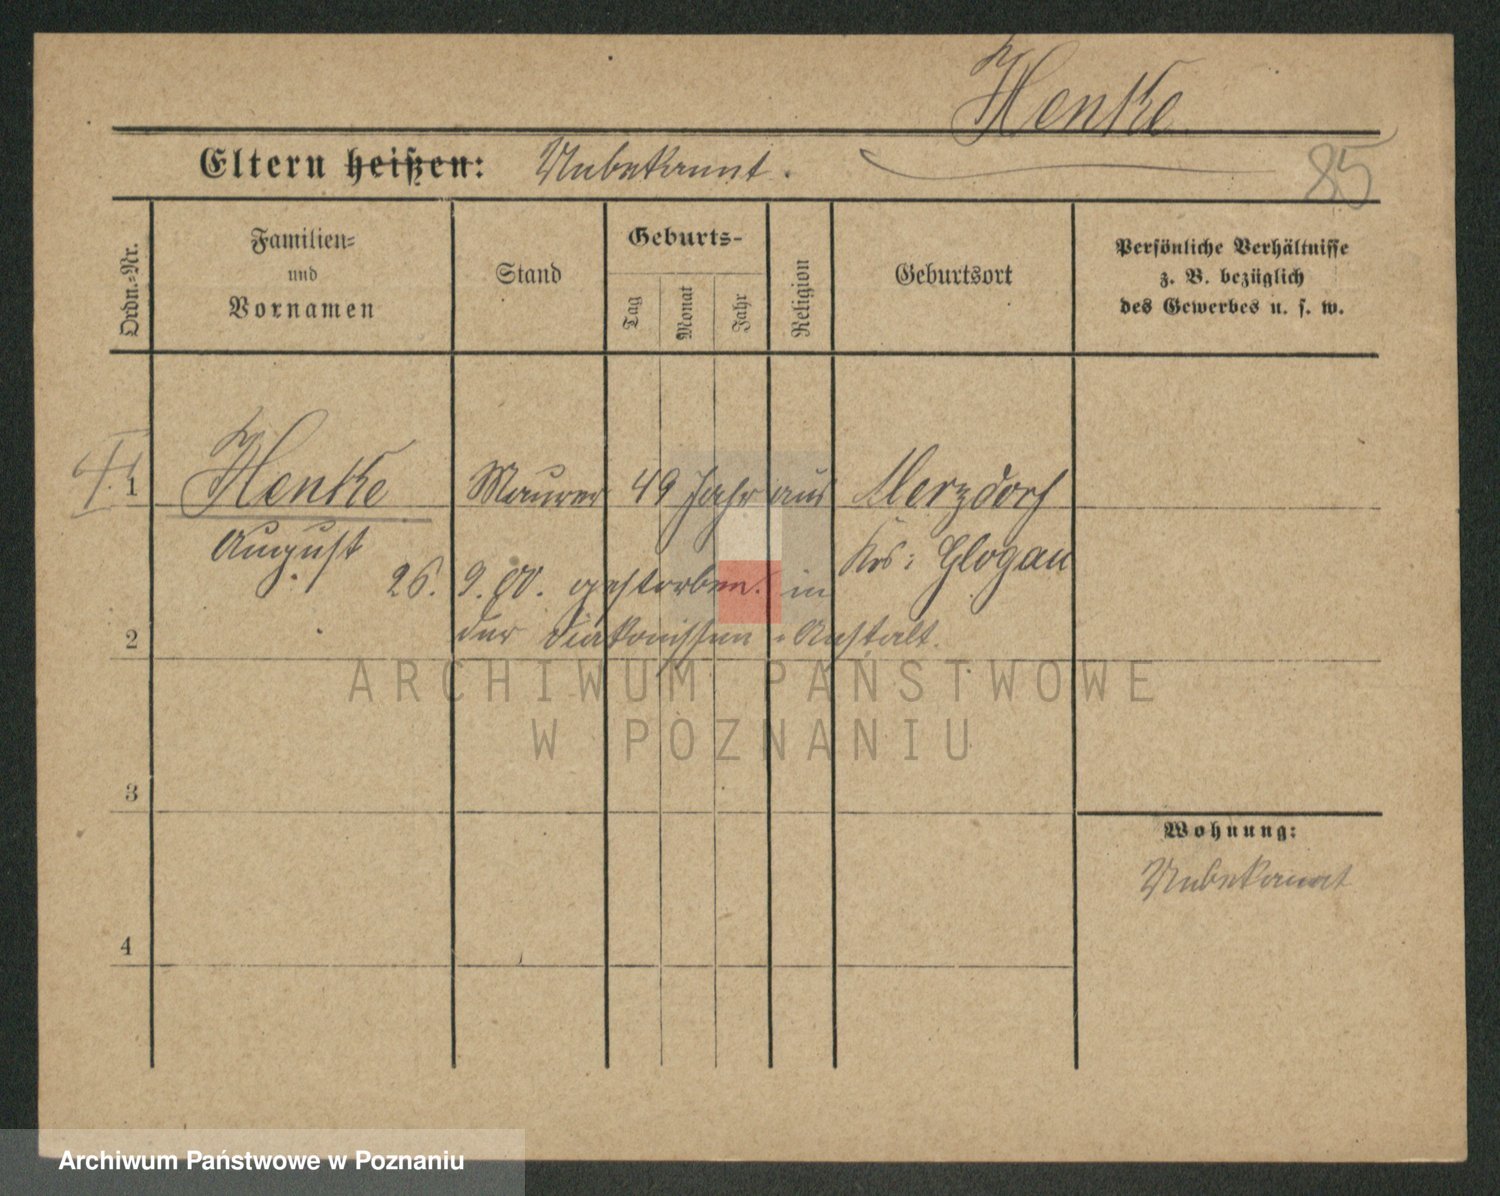 Henke
Eltern heißen: Unbekannt.
85
Ordn.=Nr.
Familien=
und
Vornamen
Stand
Geburts-
Tag
Monat
Jahr
Religion
Geburtsort
Persönliche Verhältnisse
z. B. bezüglich
des Gewerbes u. s. w.
1 Henke Maurer 49 Jahr aus Merzdorf
August Krs: Glogau
26. 9. 00. gestorben in
2 der Diakonissen=Anstalt.
ARCHIWUM PAŃSTWOWE
W POZNANIU
3
Wohnung:
Unbekannt
4
Archiwum Państwowe w Poznaniu